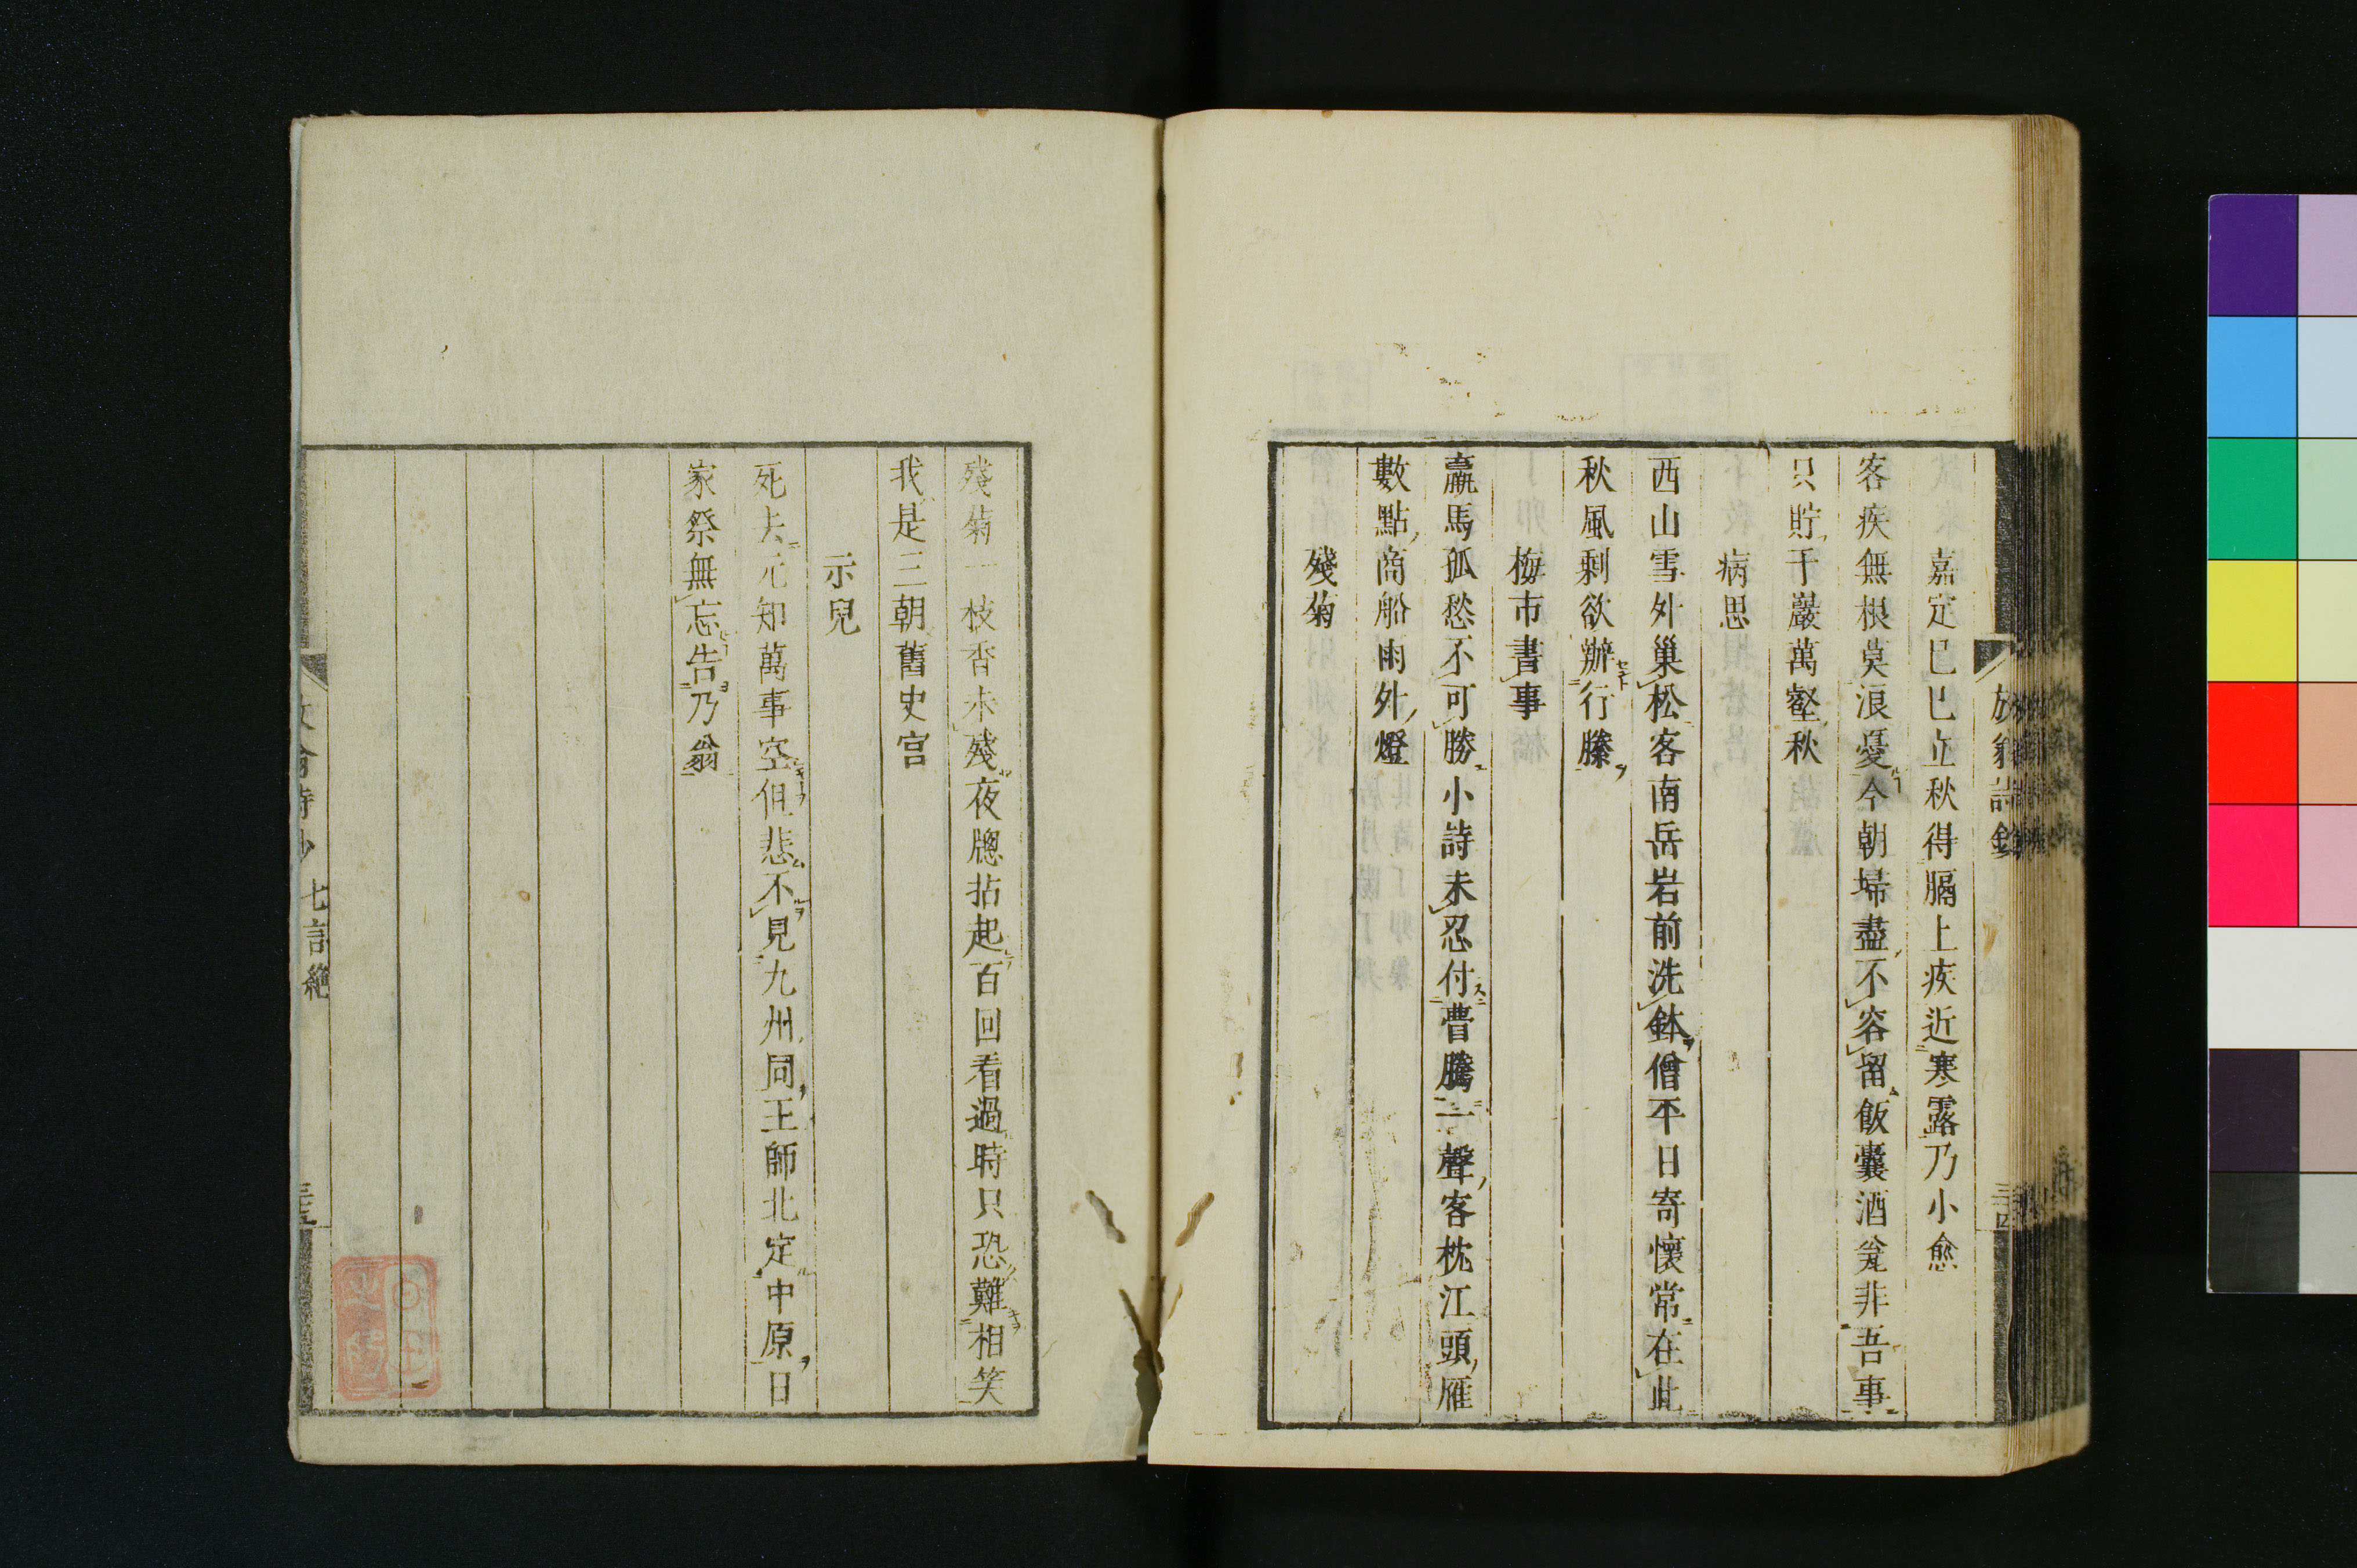 嘉定巳巳立秋得膈上疾近寒露乃小愈
客疾無根莫浪憂今朝埽盡不容留飯囊酒瓮非吾事
只貯千巖萬壑秋
病思
西山雪外巢松客南岳岩前洗鉢僧不日寄懷常在此
秋風剩欲辦行縢
梅市書事
羸馬孤愁不可勝小詩未忍付瞢騰一聲客枕江頭雁
數點商船雨外燈
殘菊
殘菊一枝香未殘夜牕拈起百回看過時只恐難相笑
我是三朝舊史官
示兒
死去元知萬事空但悲不見九州同王師北定中原日
家祭無忘告乃翁
七言絶